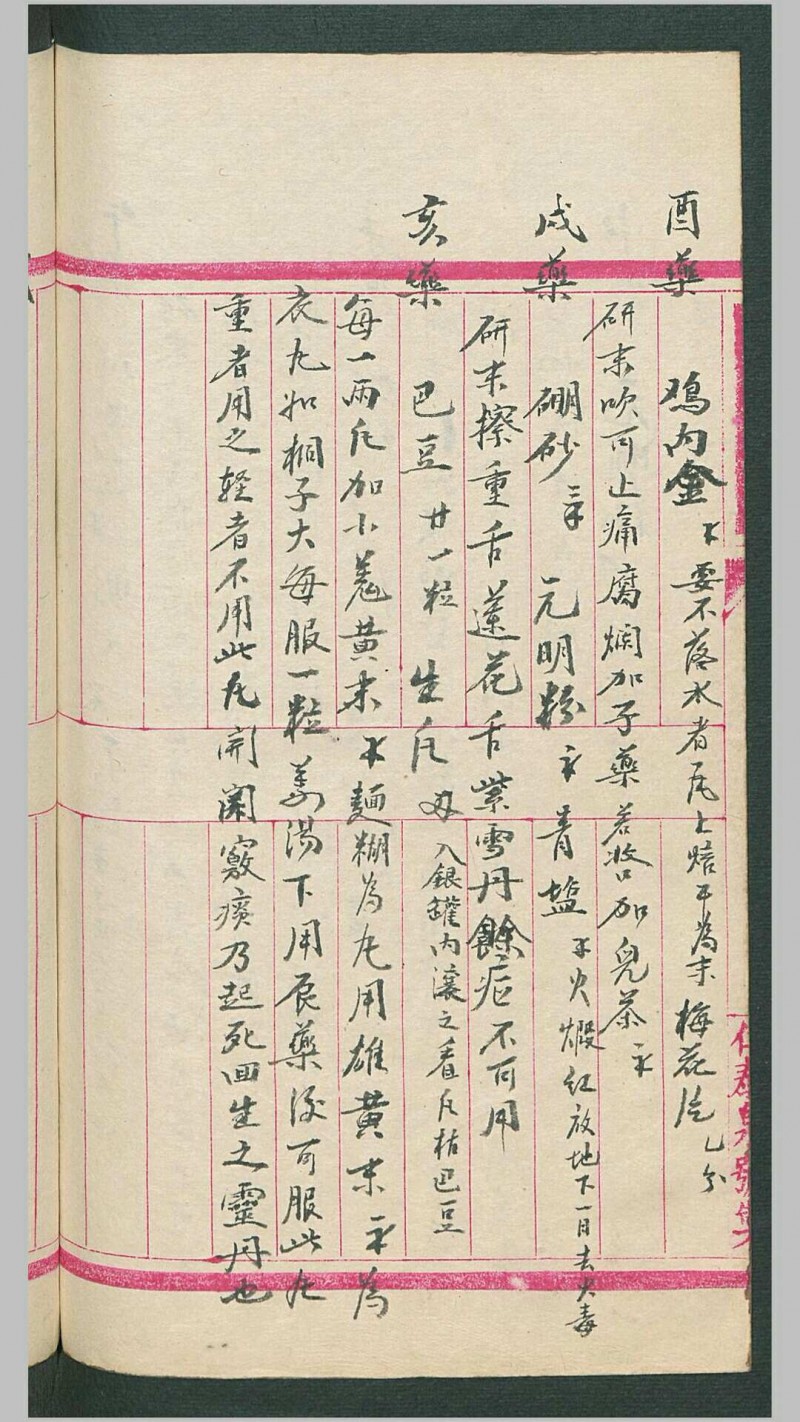 酉藥 鸡内金 要不落水者瓦上焙干為末 梅花片 乙分
研末吹可止痛腐爛加子藥若 加兒茶
戌藥 硼砂 元明粉 青塩 火煅紅放地下一日去火毒
研末擦重舌蓮花舌紫雪丹餘症不可用
亥藥 巴豆 廿一粒 生 入銀罐内滚之看 枯巴豆
每一兩 加小 黄末 麵糊為丸用雄黄末 為
衣丸如桐子大每服一粒姜湯下用辰藥後可服此丸
重者用之轻者不用此丸開関竅痰乃起死回生之靈丹也